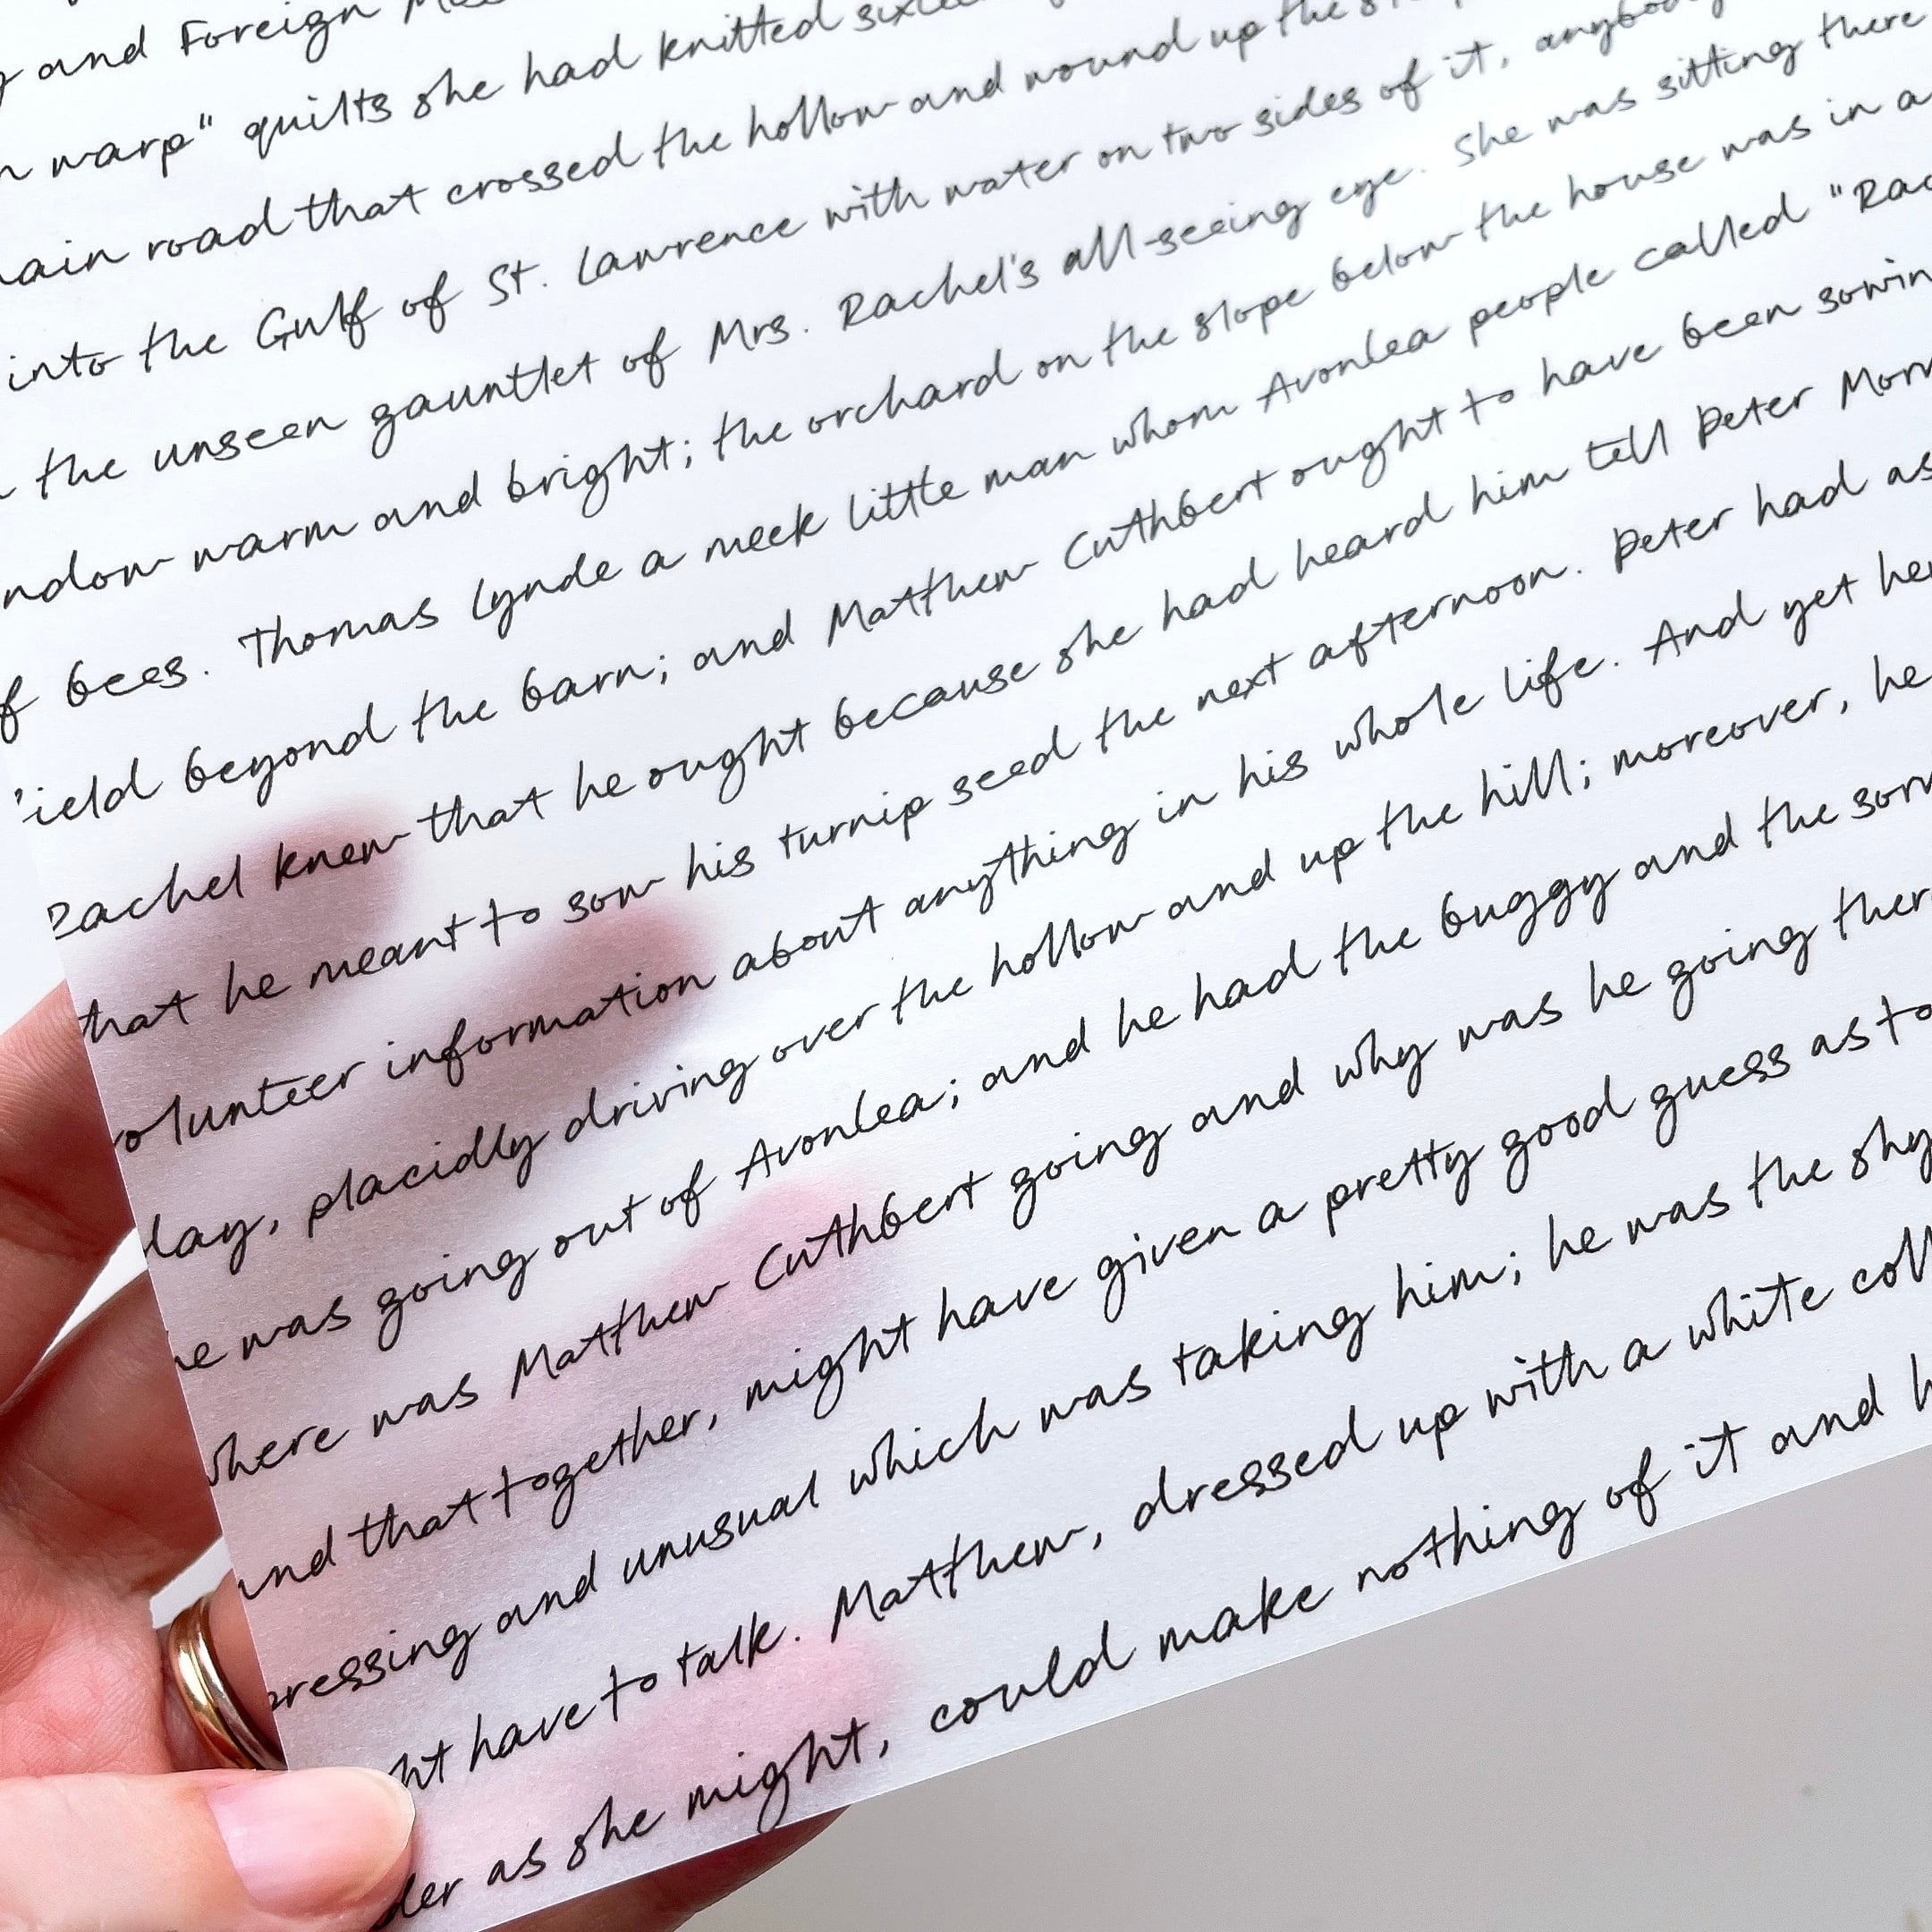 and Foreign
warp" quilts she had knitted
road that crossed the hollow and wound up the
into the Gulf of St. Lawrence with water on two sides of it, anybody
the unseen gauntlet of Mrs. Rachel's all-seeing eye. She was sitting there
ndow warm and bright; the orchard on the slope below the house was in a
f bees. Thomas Lynde a meek little man whom Avonlea people called "Rac
ield beyond the barn; and Matthew Cuthbert ought to have been sowin
Rachel knew that he ought because she had heard him tell Peter Morr
that he meant to sow his turnip seed the next afternoon. Peter had as
olunteer information about anything in his whole life. And yet her
day, placidly driving over the hollow and up the hill; moreover, he
he was going out of Avonlea; and he had the buggy and the sorr
where was Matthew Cuthbert going and why was he going ther
and that together, might have given a pretty good guess as to
pressing and unusual which was taking him; he was the shy
ht have to talk. Matthew, dressed up with a white coll
der as she might, could make nothing of it and h